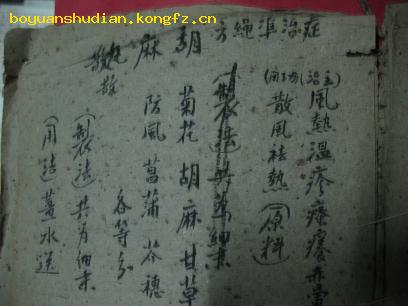 boyuanshudian.kongfz.cn
症治準繩方
胡麻散
(主治)風熱溫疹瘙癢赤
(功用)散風祛熱(原料)
(製法)共為細末
菊花胡麻甘草
防風菖蒲芥穗
各等分
(製法)共为細末
(用法)薑水送